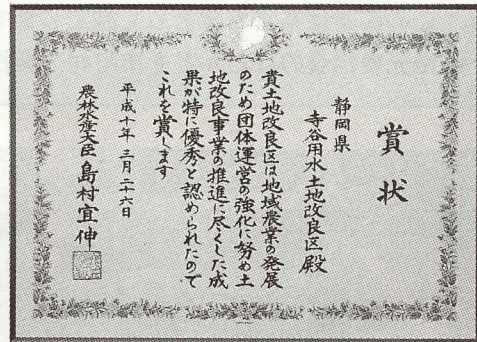 賞状
静岡県
寺谷用水土地改良区殿
貴土地改良区は地域農業の発展
のため団体運営の強化に努め土
地改良事業の推進に尽くした成
果が特に優秀と認められたので
これを賞します
平成十年三月二十六日
農林水産大臣 島村宜伸